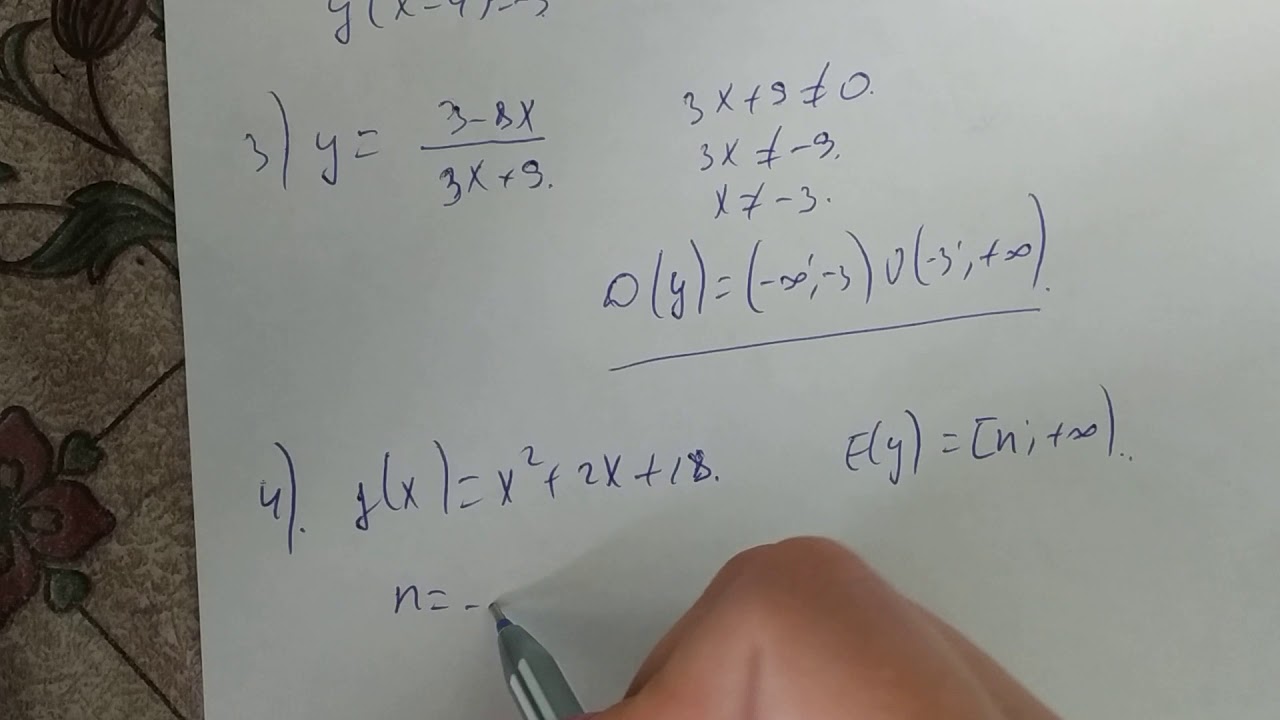 3) y = (3-8x)/(3x+9).
3x+9≠0.
3x≠-9.
x≠-3.
D(y)=(-∞;-3)U(-3;+∞).
4). y(x)=x²+2x+18.
E(y)=[n;+∞)..
n=-